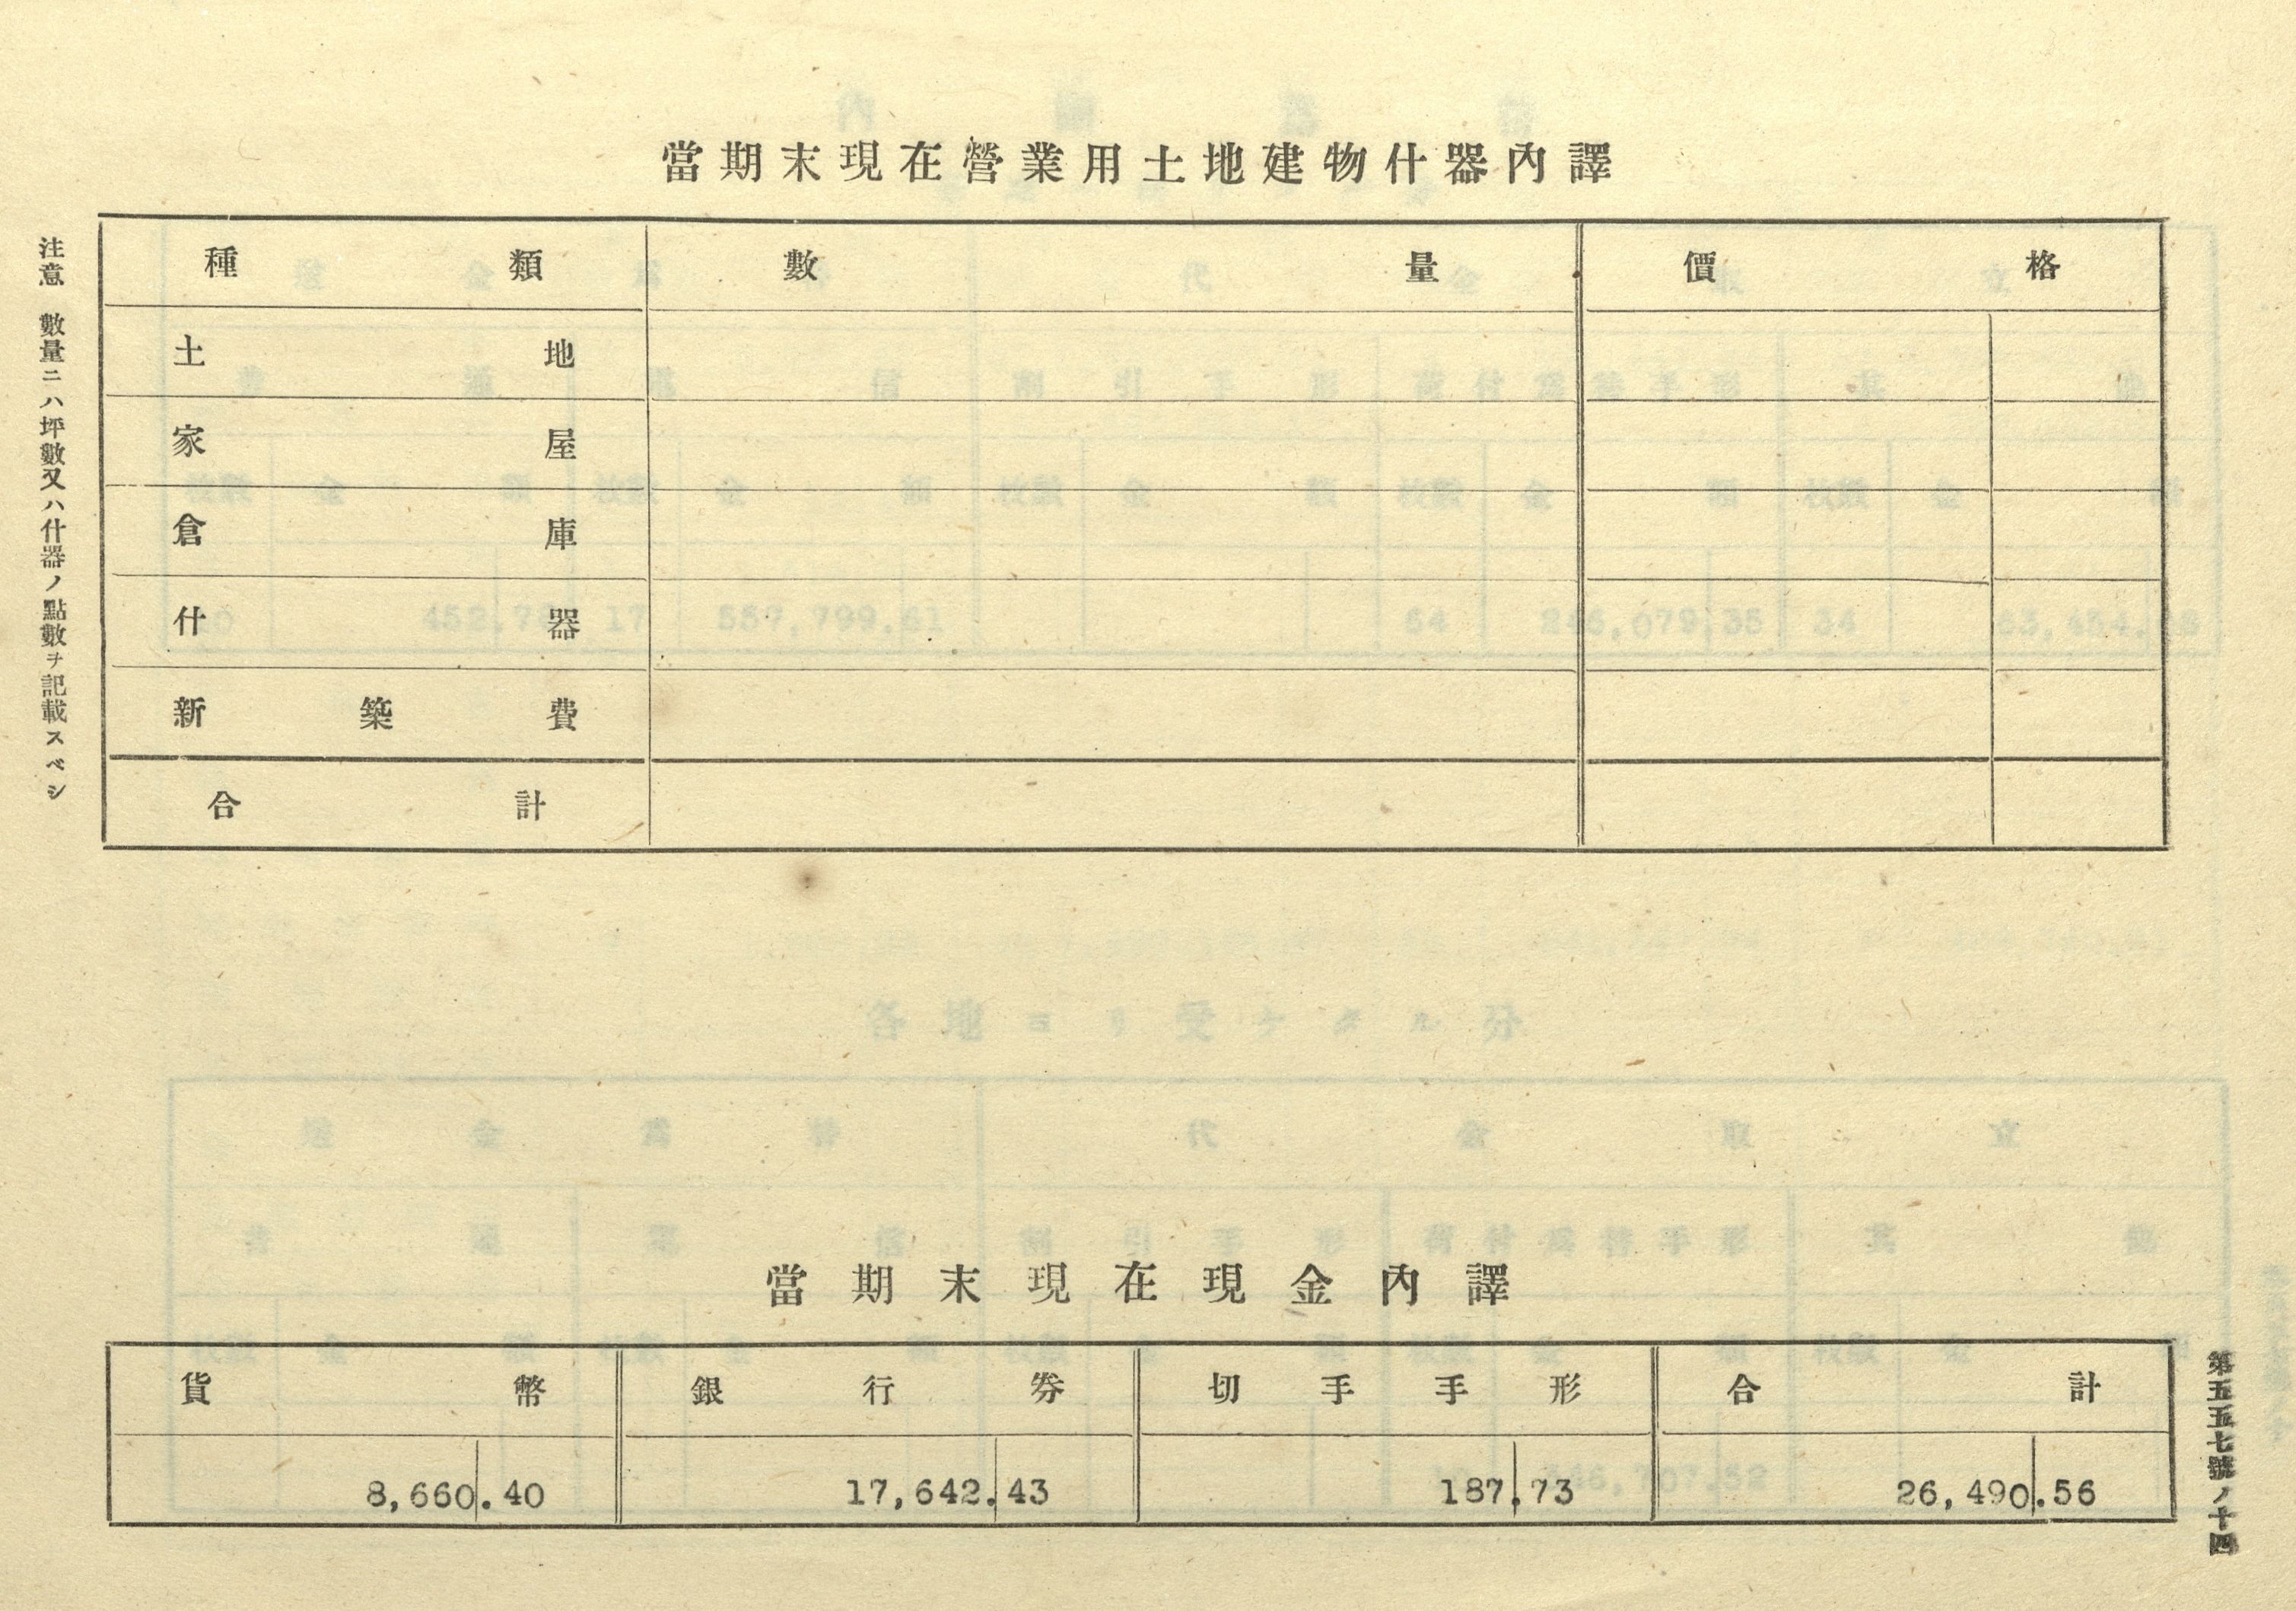 當期末現在營業用土地建物什器內譯
種類 數量 價格
土地
家屋
倉庫
什器
新築費
合計
注意 數量ニハ坪數又ハ什器ノ點數ヲ記載スベシ
當期末現在現金內譯
貨幣 銀行券 切手手形 合計
8,660.40 17,642.43 187.73 26,490.56
第五五七號ノ十四